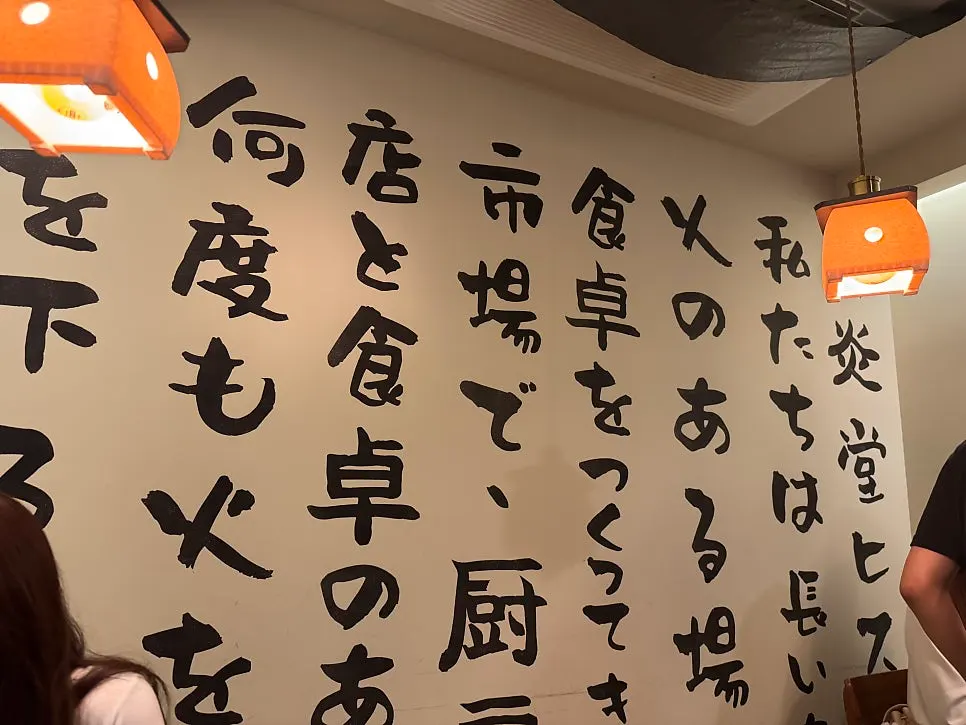 炎堂ヒス
私たちは長い
火のある場
食卓をつくってき
市場で、厨
店と食卓のあ
何度も火を
を下る